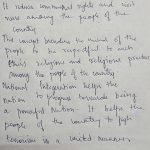 It reduce communal rights and riot
wars among the people of the
country.
This concept broaden the mind of the
people to be respectful to each
others religions and religious practice
among the people of the country
National Integration helps the
nation to prosper towards being
a powerful Nation. It helps the
people of the country to fight
terrorism in a united manner.